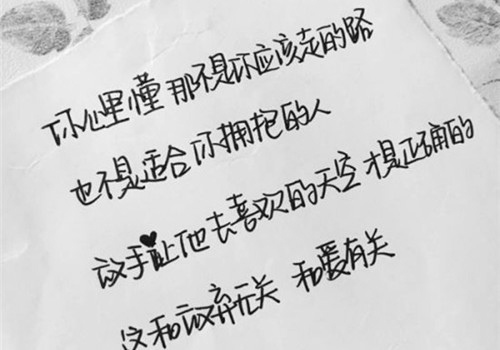 你心里懂 那不是你应该走的路
也不是适合你拥抱的人
放手让他去喜欢的天空 才是正确的
这和放弃无关 和爱有关